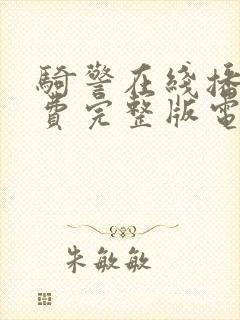 騎警在綫播
費完整版電
朱敏敏